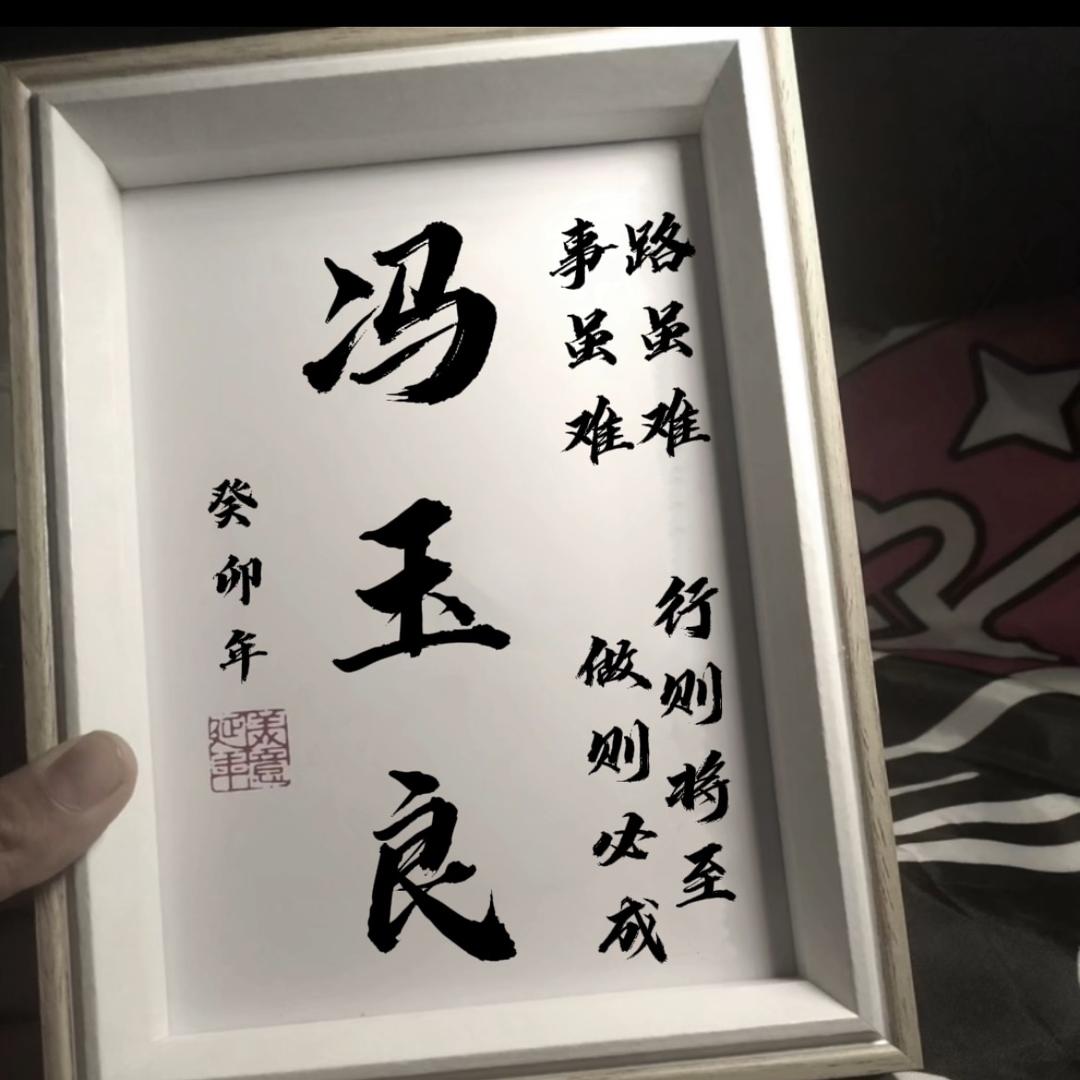 路虽难 行则将至
事虽难 做则必成
冯玉良
癸卯年
美意延年